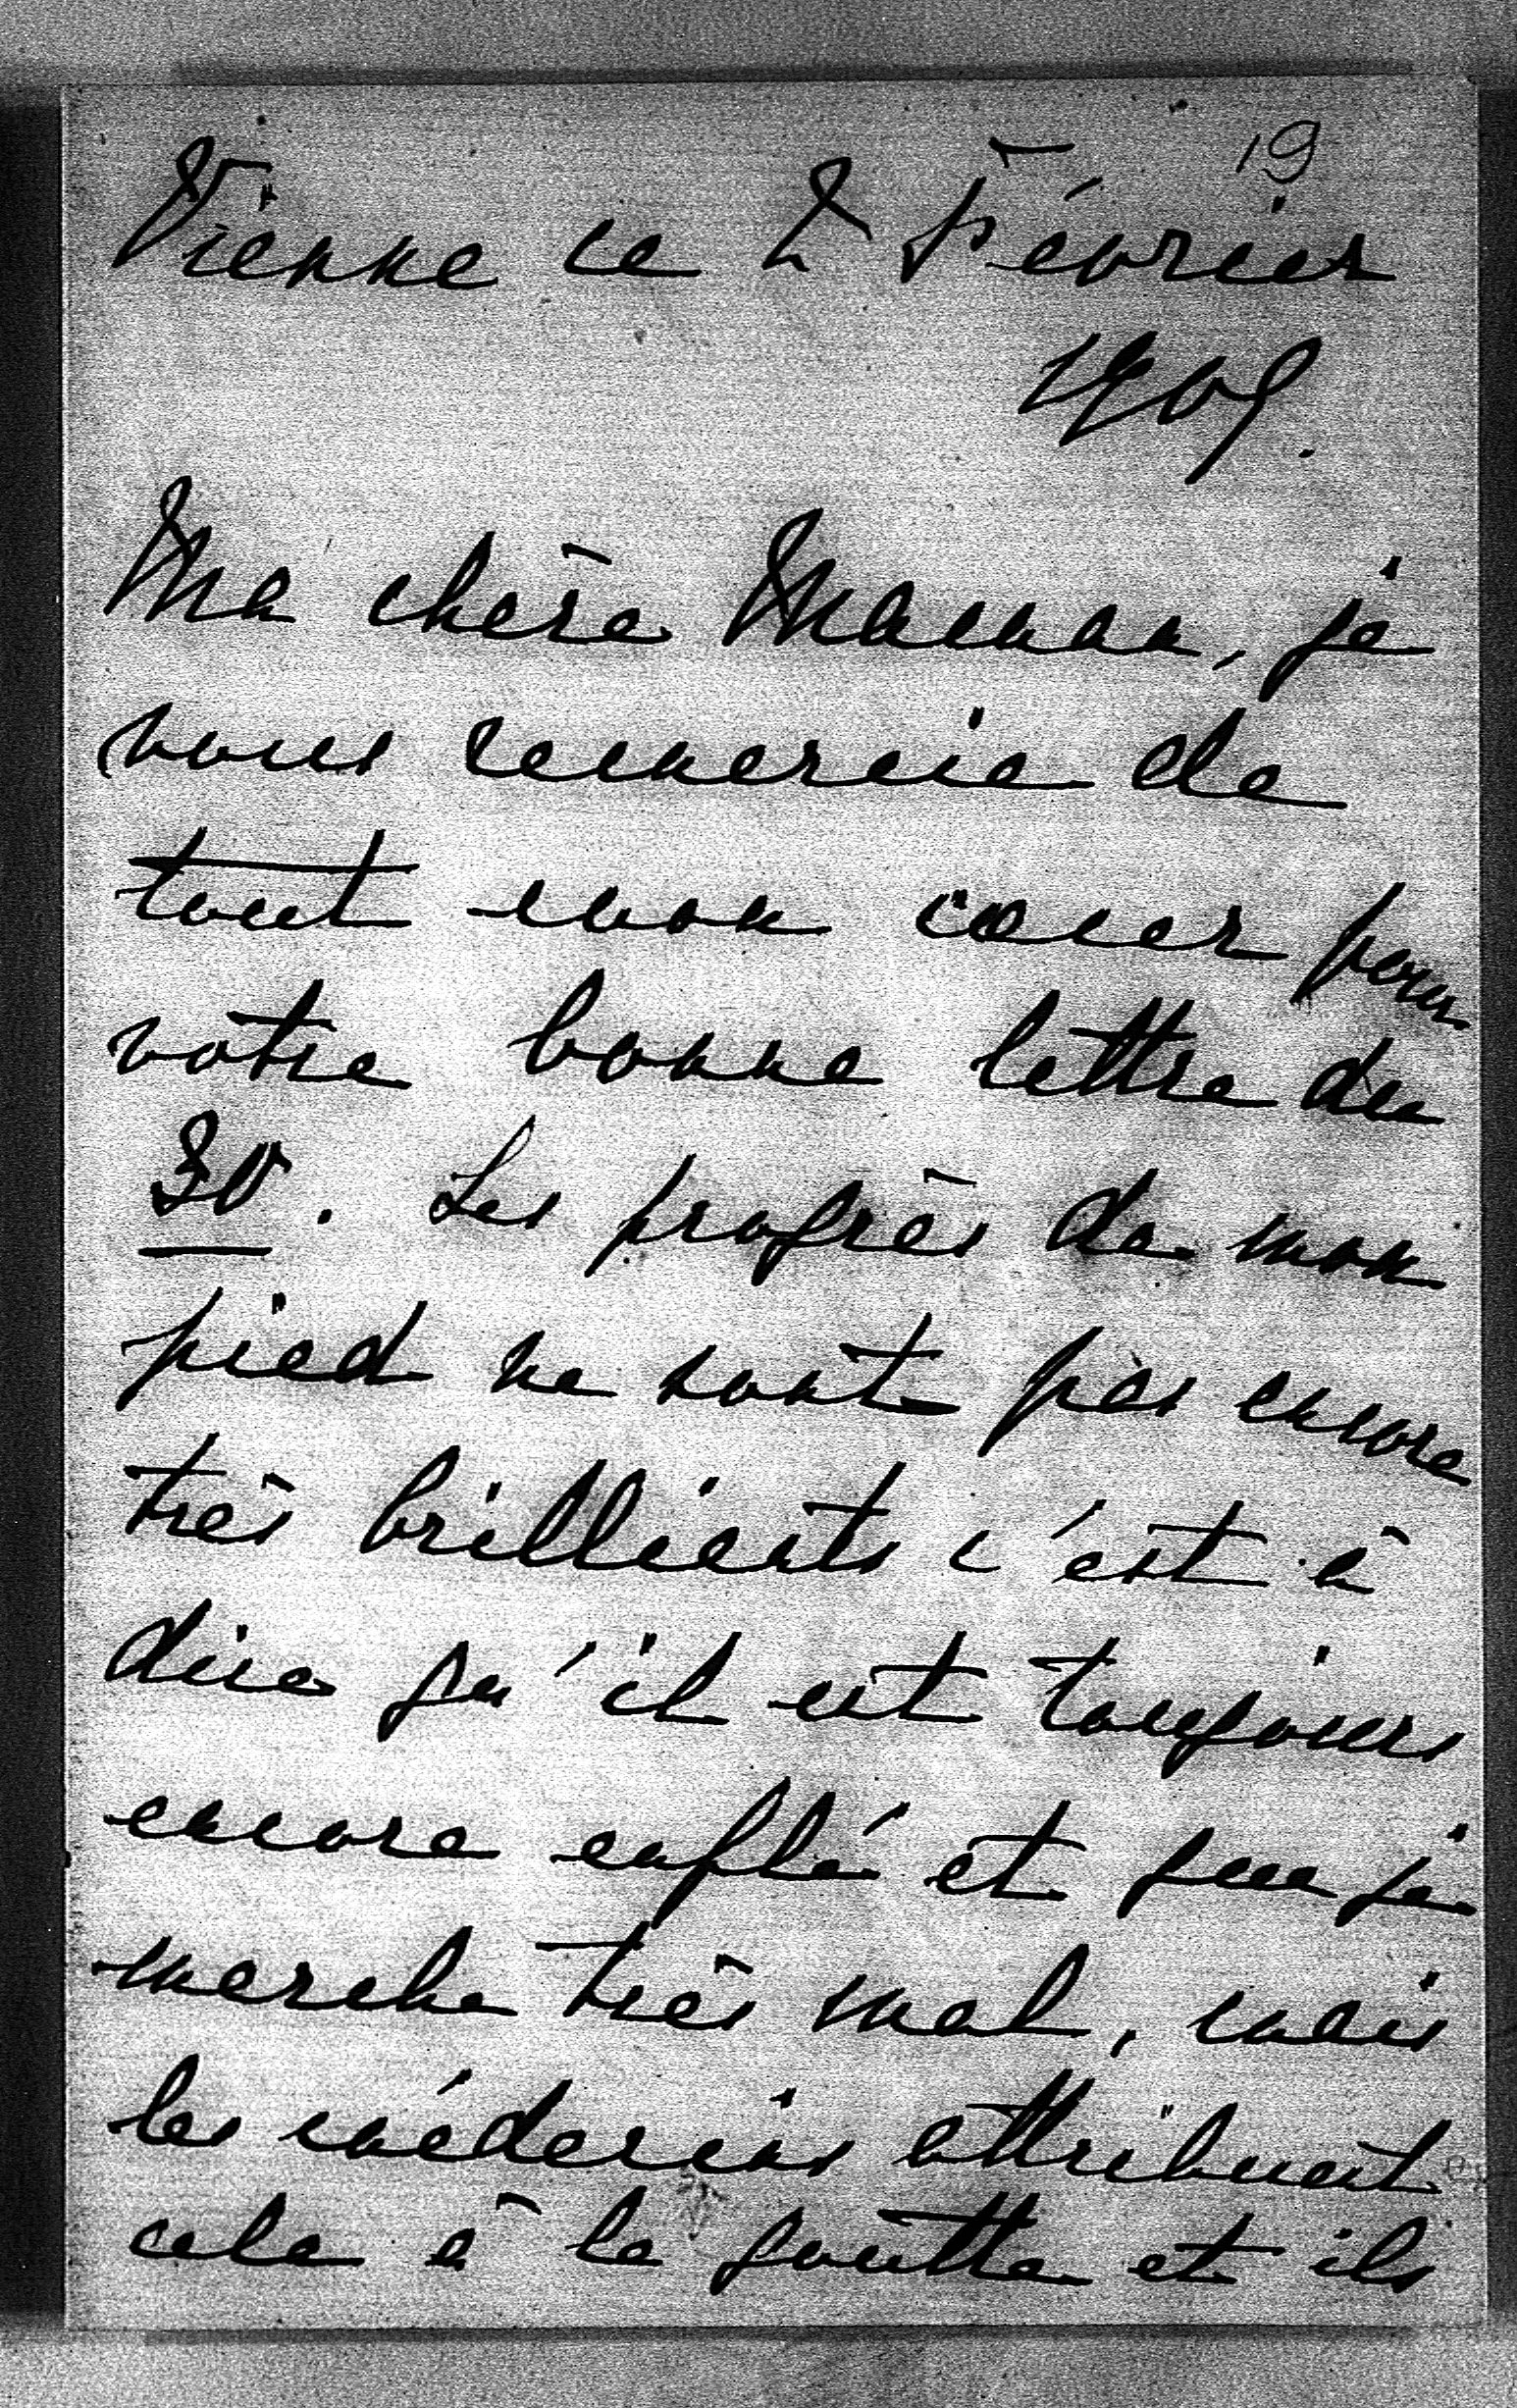 19
Vienne ce 2 Février
1909.
Ma chère Maman, je
vous remercie de
tout mon coeur pour
votre bonne lettre du
30. Les progrès de mon
pied ne sont pas encore
très brillants c'est à
dire qu'il est toujours
encore enflé et que je
marche très mal, mais
les médecins attribuent
cela à la goutte et ils